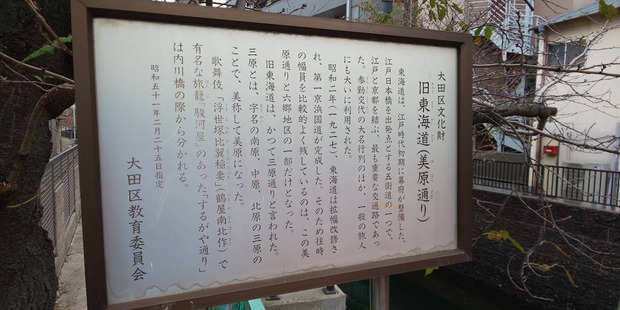 大田区文化財
旧東海道(美原通り)
東海道は、江戸時代初期に幕府が整備した、
江戸日本橋を出発点とする五街道の一つで、
江戸と京都を結ぶ、最も重要な交通路であっ
た。参勤交代の大名行列のほか、一般の旅人
にも大いに利用された。
昭和二年(一九二七)、東海道は拡幅改修さ
れ、第一京浜国道が完成した。そのため往時
の幅員を比較的よく残しているのは、この美
原通りと六郷地区の一部だけとなった。
旧東海道は、かつて三原通りと言われた。
三原とは、字名の南原、中原、北原の三原の
ことで、美称して美原になった。
歌舞伎、「浮世塚比翼稲妻」(鶴屋南北作)で
有名な旅籠「駿河屋」のあった「するがや通り」
は内川橋の際から分かれる。
昭和五十一年二月二十五日指定
大田区教育委員会